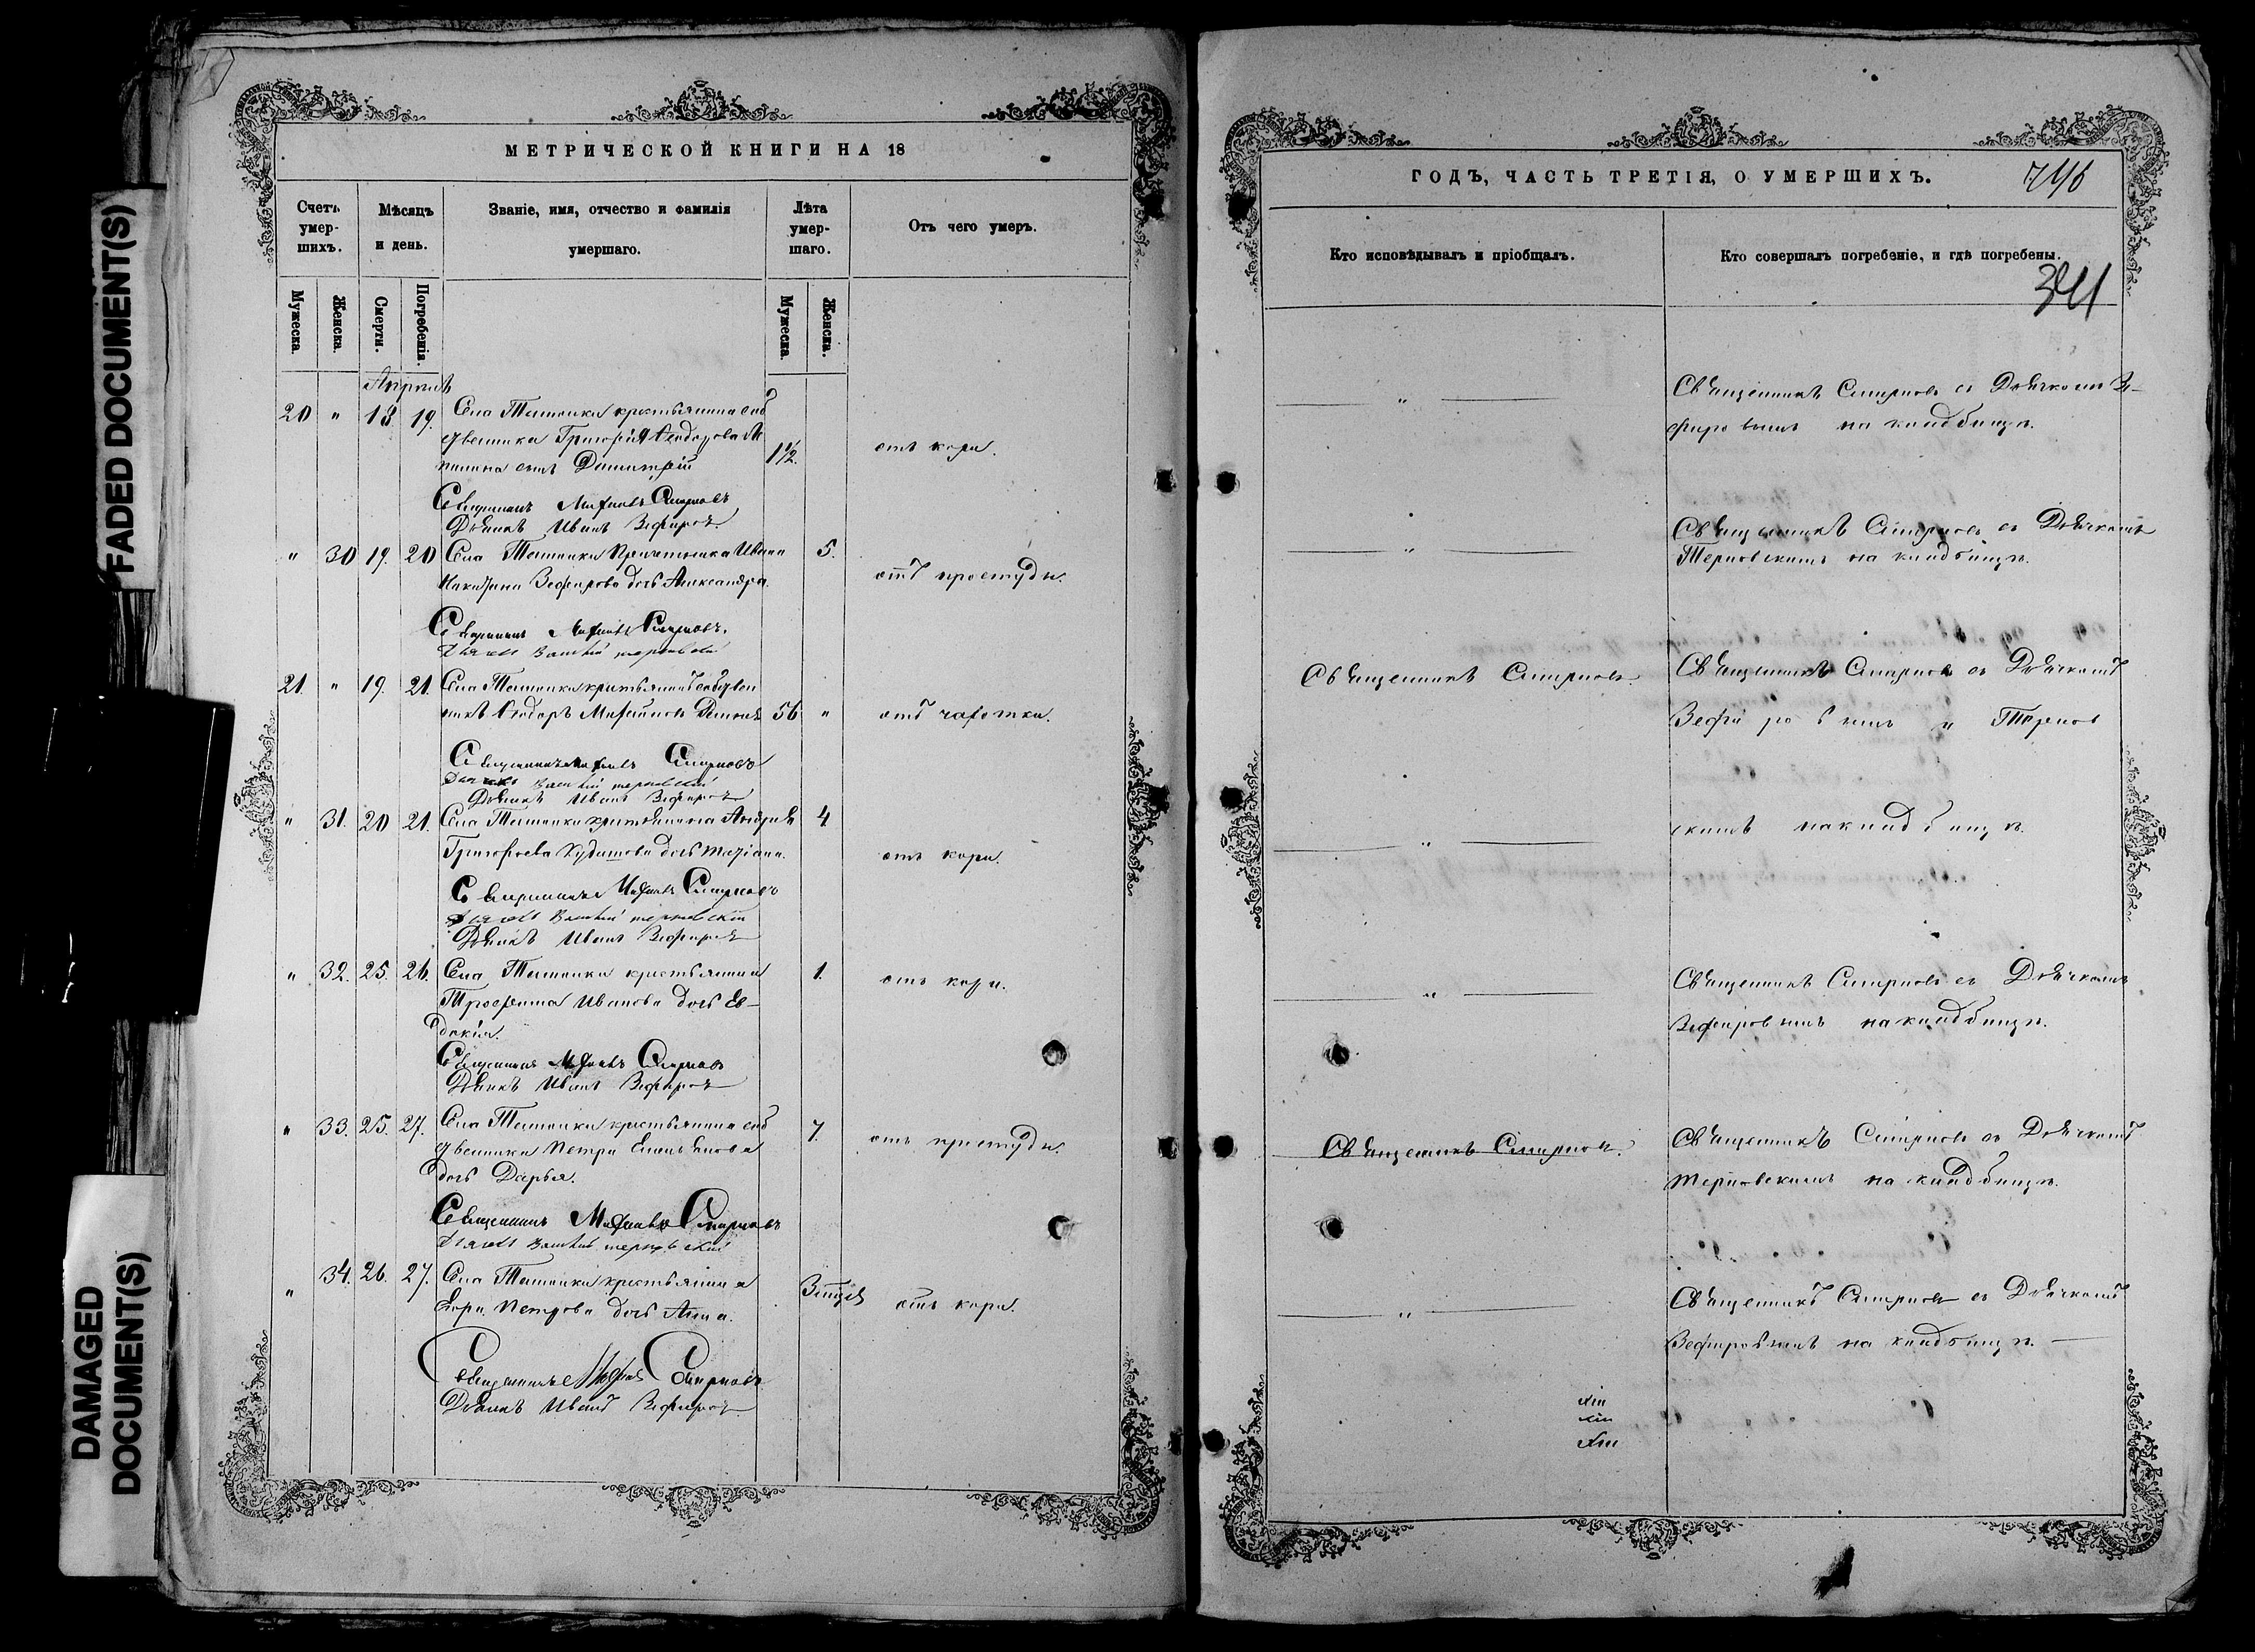 FADED DOCUMENT(S)
DAMAGED
DOCUMENT(S)
МЕТРИЧЕСКОЙ КНИГИ НА 18
Счетъ умер-шихъ.
Мѣсяцъ и день.
Званіе, имя, отчество и фамилія умершаго.
Лѣта умер-шаго.
Отъ чего умеръ.
Мужеска.
Женска.
Смерти.
Погребенія.
Мужеска.
Женска.
Апрель
20 " 18 19. Села крестьянина соб
ственника Григорія Ѳеодорова
сынъ Димитрій 1 1/2. отъ кори.
Священникъ Михаилъ Смирновъ
Дьячекъ Иванъ Зефировъ
" 30 19. 20 Села Причетника Ивана 5.
Зефирова дочь Александра. отъ простуды.
Священникъ Михаилъ Смирновъ.
Дьячекъ Василій Терновскій
21. " 19. 21. Села крестьянинъ собствен
никъ Ѳеодоръ Михайловъ 56 " отъ чахотки.
Священникъ Михаилъ Смирновъ
Дьячекъ Василій Терновскій
Дьячекъ Иванъ Зефировъ
" 31. 20 21. Села крестьянина Андрея 4
Григорьева дочь отъ кори.
Священникъ Михаилъ Смирновъ
Дьячекъ Василій Терновскій
Дьячекъ Иванъ Зефировъ
" 32. 25. 26. Села крестьянина 1. отъ кори.
Трофима Иванова дочь Ев-
докія.
Священникъ Михаилъ Смирновъ
Дьячекъ Иванъ Зефировъ
" 33. 25. 27. Села крестьянина соб 7. отъ простуды.
ственника Петра Емельянова
дочь Дарья.
Священникъ Михаилъ Смирновъ
Дьячекъ Василій Терновскій
" 34. 26. 27. Села крестьянина
Петрова дочь Анна. отъ кори.
Священникъ Михаилъ Смирновъ
Дьячекъ Иванъ Зефировъ
ГОДЪ, ЧАСТЬ ТРЕТІЯ, О УМЕРШИХЪ.
746
Кто исповѣдывалъ и пріобщалъ.
Кто совершалъ погребеніе, и гдѣ погребены.
341
" Священникъ Смирновъ съ Дьячкомъ Зе-
фировымъ на кладбищѣ.
" Священникъ Смирновъ съ Дьячкомъ
Терновскимъ на кладбищѣ.
Священникъ Смирновъ. Священникъ Смирновъ съ Дьячкомъ
Зефировымъ и Тернов
скимъ на кладбищѣ.
"
" Священникъ Смирновъ съ Дьячкомъ
Зефировымъ на кладбищѣ.
Священникъ Смирновъ. Священникъ Смирновъ съ Дьячкомъ
Терновскимъ на кладбищѣ.
" Священникъ Смирновъ съ Дьячкомъ
Зефировымъ на кладбищѣ.